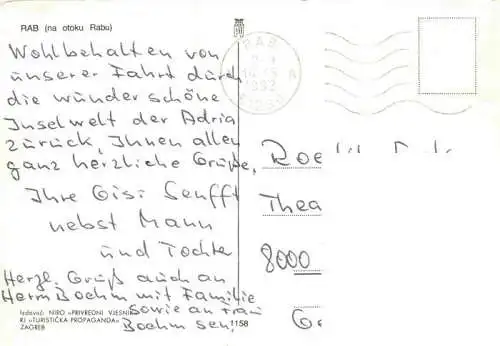 RAB (na otoku Rabu)
Wohlbehalten von
unserer Fahrt durch
die wunderschöne
Inselwelt der Adria
zurück, Ihnen allen
ganz herzliche Grüße,
Ihre Gisi Senfft
nebst Mann
und Tochter
Herzl. Gruß auch an
Herrn Boehm mit Familie
sowie an Frau
Boehm sen!
Izdavač: NIRO »PRIVREDNI VJESNIK
RJ »TURISTIČKA PROPAGANDA«
ZAGREB
1158
RAB
Thea
8000